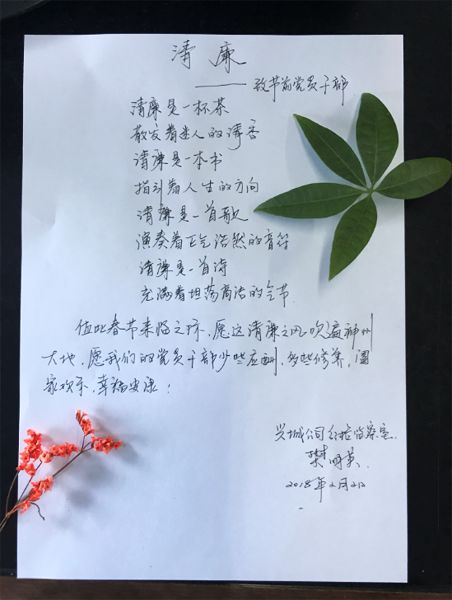 清廉
——致节前党员干部
清廉是一杯茶
散发着迷人的清香
清廉是一本书
指引着人生的方向
清廉是一首歌
演奏着正气浩然的音符
清廉是一首诗
充满着坦荡高洁的气节
值此春节来临之际，愿这清廉之风吹遍神州
大地，愿我们的党员干部少些应酬，多些修养，阖
家欢乐，幸福安康！
兴城公司纪检监察室
明英
2018年2月2日